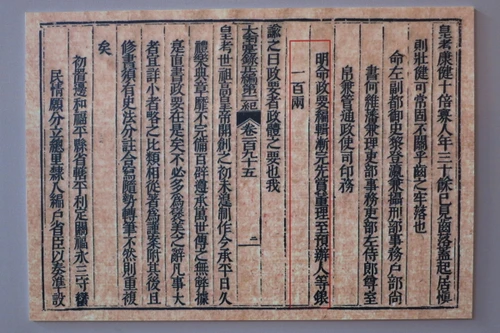 皇考康健十倍衆人年三十餘已見齒落蓋起居極
則壯健可常固不關乎齒之牢落也
命左副都御史黎登瀛兼攝刑部事務戶部尚
書何維藩兼理吏部事務吏部左侍郎尊室
帛兼管通政使司印務
明命政要編輯漸完先賞董理至預辦人等銀
一百兩
諭之曰政要者政體之要也我
大南寔錄正編第二紀 卷 百九十五
皇考世祖高皇帝開創之初未遑制作今承平日久
禮樂典章靡不完備百辟遵承萬世傳之無弊據
寔直書政要在是矣不必多為褒美之辭凡事大
者宜詳小者略之比類相從者為謹案附其後且
修書須有史法分註合寫隨勢轉筆不然則重複
矣
初置邊和福平縣省轄平利定賜福永三守蠻
民情願分立總里隸人編戶省臣以奏準設